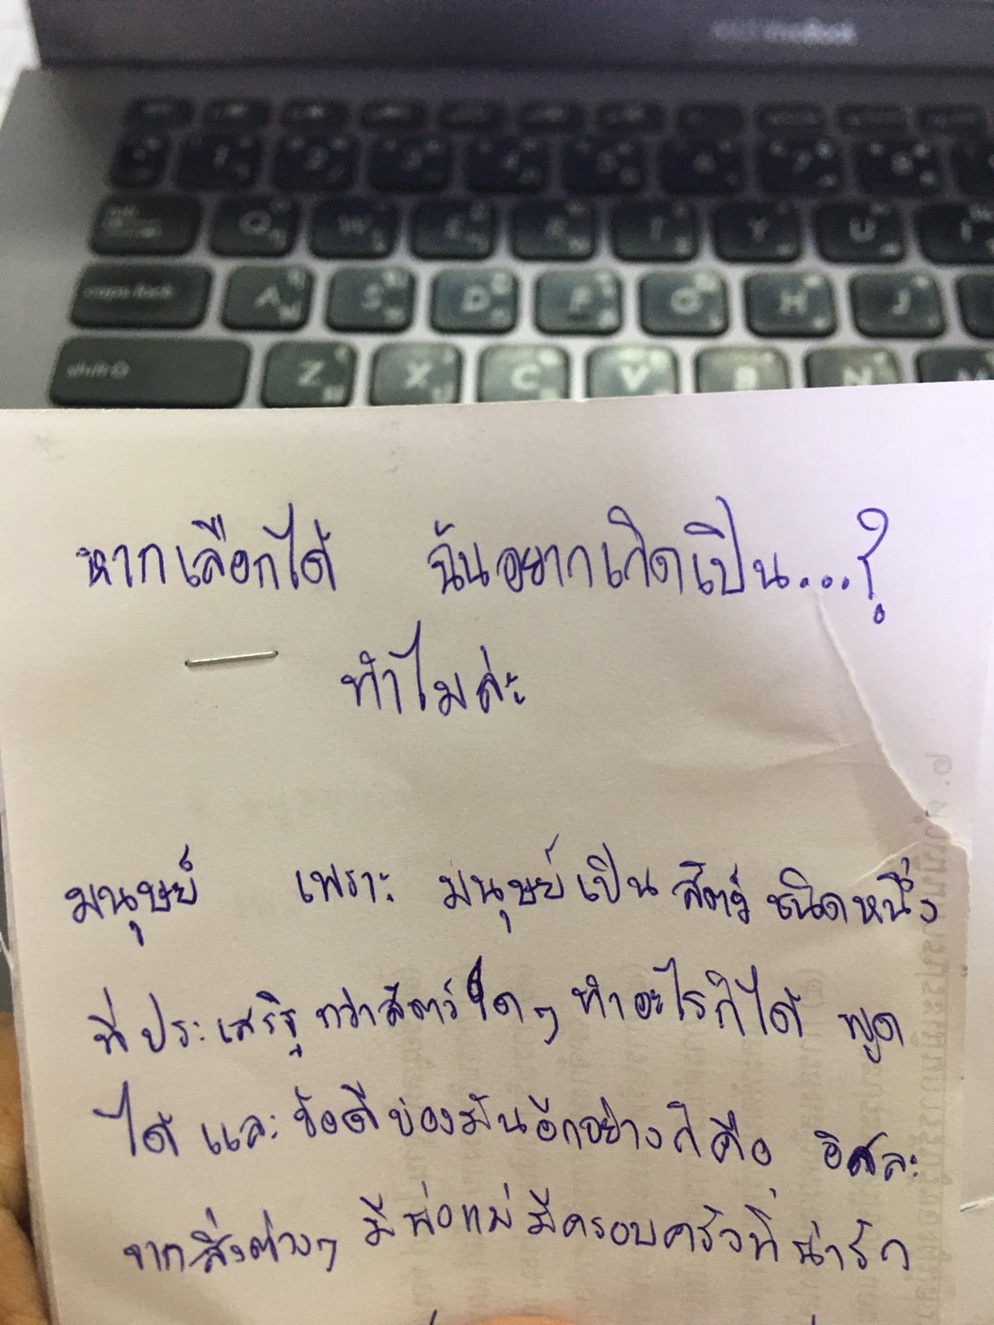 VivoBook
1 2 3 4 5 6 7 8
Q W E R T Y U I
caps lock A S D F G H J
shift Z X C V B N M
หากเลือกได้ ฉันอยากเกิดเป็น...?
ทำไมล่ะ
มนุษย์ เพราะ มนุษย์เป็น สัตว์ ชนิดหนึ่ง
ที่ ประเสริฐ กว่าสัตว์ใดๆ ทำอะไรก็ได้ พูด
ได้ และ ข้อดีของมันอีกอย่าง ก็คือ อิสละ
จากสิ่งต่างๆ มีพ่อแม่ มีครอบครัวที่ น่ารัก